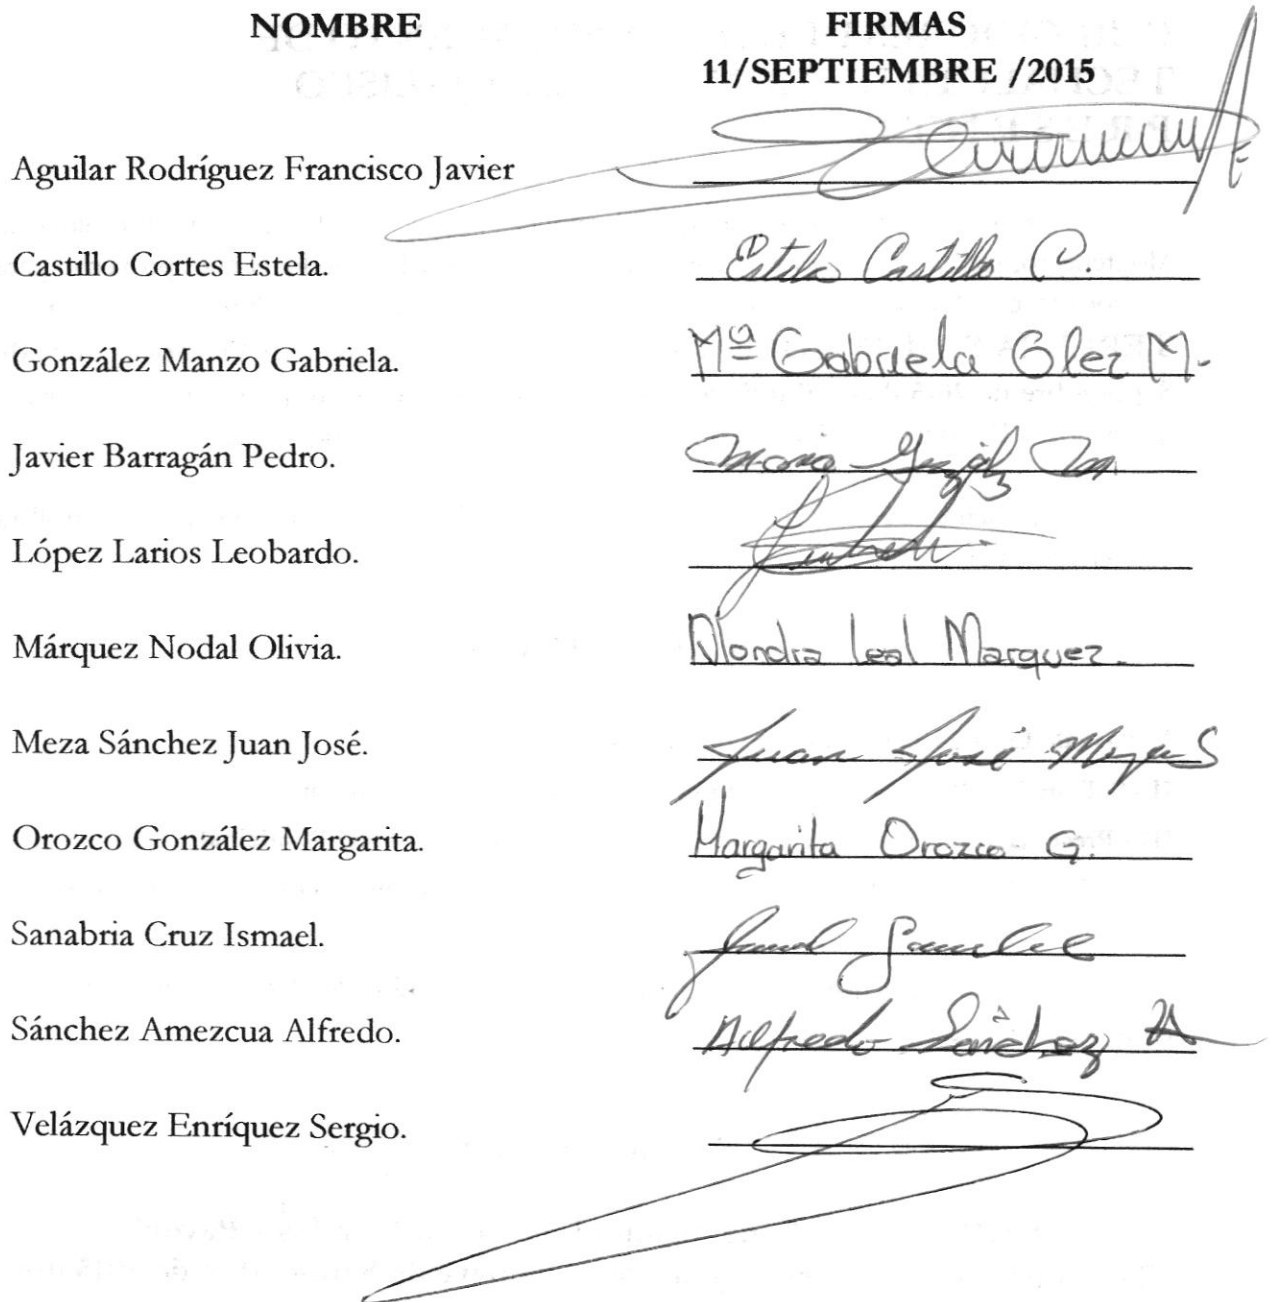 NOMBRE FIRMAS
11/SEPTIEMBRE /2015
Aguilar Rodríguez Francisco Javier
Castillo Cortes Estela. Estela Castillo C.
González Manzo Gabriela. Mª Gabriela Glez M.
Javier Barragán Pedro. Maria
López Larios Leobardo.
Márquez Nodal Olivia. Leal Marquez.
Meza Sánchez Juan José. Juan José Meza S
Orozco González Margarita. Margarita Orozco G.
Sanabria Cruz Ismael.
Sánchez Amezcua Alfredo. Alfredo Sánchez A
Velázquez Enríquez Sergio.